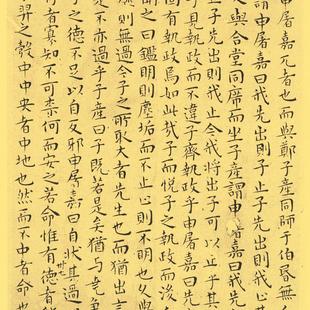 申屠嘉兀者也而與鄭子產同師于伯昏無人
謂申屠嘉曰我先出則子止子先出則我止其
又與合堂同席而坐子產謂申屠嘉曰我先
子先出則我止今我將出子可以止乎其
子見執政而不違子齊執政乎申屠嘉曰先
有執政焉如此哉子而悅子之執政而後
聞之曰鑑明則塵垢而不止止則不明也久與
處則無過今子之所取大者先生也而猶出言
是不亦過乎子產曰子既若是矣猶與堯爭
子之德不足以自反邪申屠嘉曰自狀其過
者寡知不可柰何而安之若命惟有德者
羿之彀中中央者中地也然而不中者命也